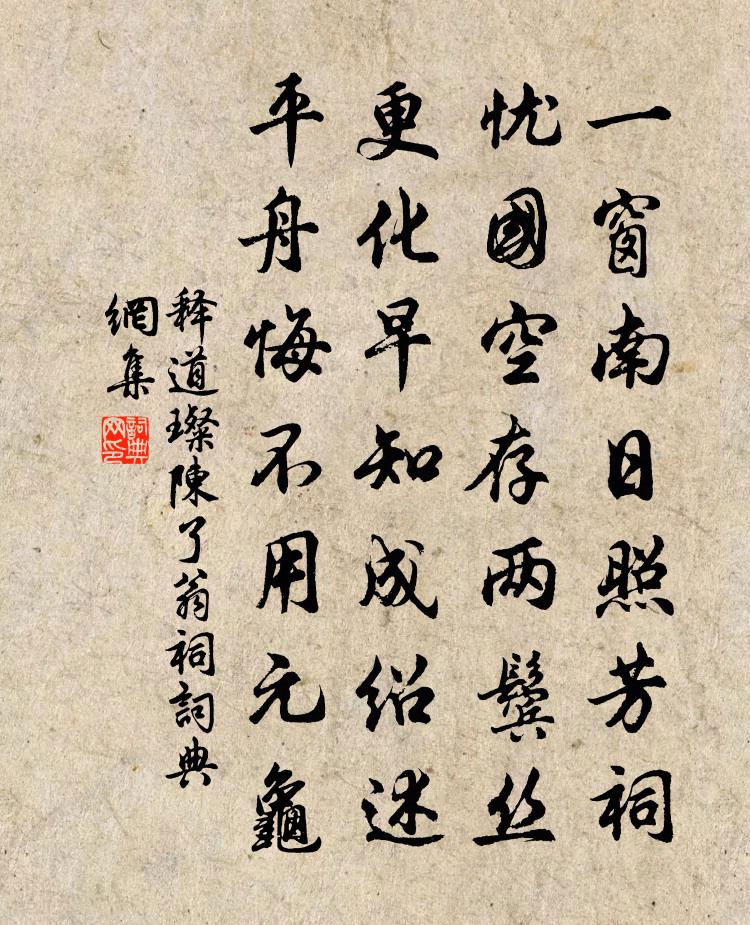 一窗南日照芳祠
忧國空存两鬓丝
更化早知成绍述
平舟悔不用元龜
释道璨陳了翁祠詞典
網集
詞典
网印